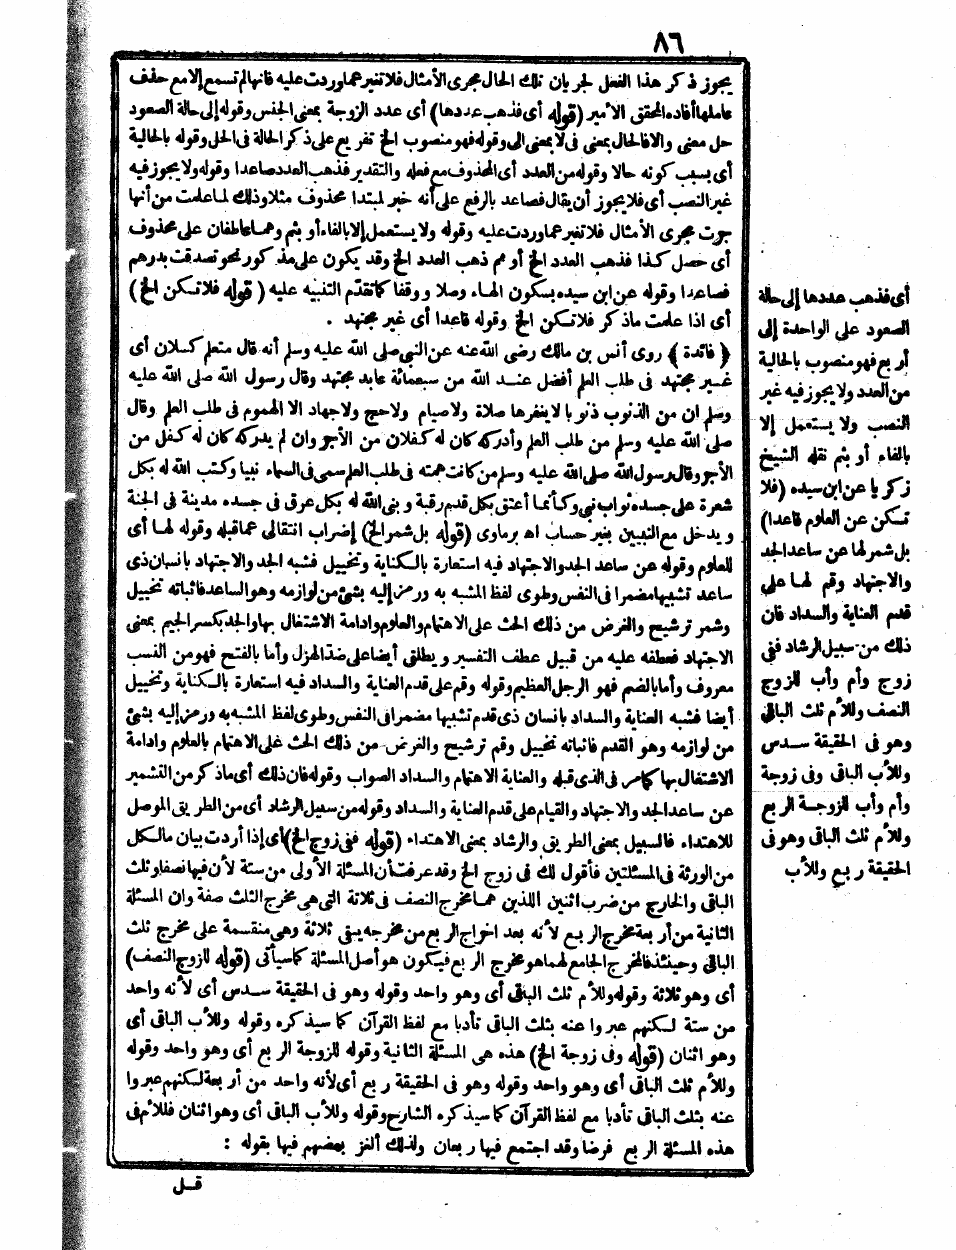 ٨٦
يجوز ذكر هذا الفعل لجريان تلك الحال مجرى الأمثال فلا تغير عما وردت عليه فانها لم تسمع إلا مع حذف
عاملها أفاده المحقق الأمير (قوله أى فذهب عددها) أى عدد الزوجة بمعنى الجنس وقوله إلى حالة الصعود
حل معنى والا فالحال بمعنى فى لا بمعنى الى وقوله فهو منصوب الخ تفريع على ذكر الحالة فى الحل وقوله بالحالية
أى بسبب كونه حالا وقوله من العدد أى المحذوف مع فعله والتقدير فذهب العدد صاعدا وقوله ولا يجوز فيه
غير النصب أى فلا يجوز أن يقال فصاعد بالرفع على أنه خبر لمبتدا محذوف مثلا وذلك لما علمت من أنها
جرت مجرى الأمثال فلا تغير عما وردت عليه وقوله ولا يستعمل إلا بالفاء أو بثم وهما عاطفان على محذوف
أى حصل كذا فذهب العدد الخ أو ثم ذهب العدد الخ وقد يكون على مذكور نحو تصدقت بدرهم
فصاعدا وقوله عن ابن سيده بسكون الهاء وصلا ووقفا كما تقدّم التنبيه عليه (قوله فلا تكن الخ)
أى اذا علمت ماذكر فلا تكن الخ وقوله قاعدا أى غير مجتهد .
﴿فائدة﴾ روى أنس بن مالك رضى الله عنه عن النبى صلى الله عليه وسلم أنه قال متعلم كسلان أى
غير مجتهد فى طلب العلم أفضل عند الله من سبعمائة عابد مجتهد وقال رسول الله صلى الله عليه
وسلم ان من الذنوب ذنوبا لا يغفرها صلاة ولا صيام ولا حج ولا جهاد الا الهموم فى طلب العلم وقال
صلى الله عليه وسلم من طلب العلم وأدركه كان له كفلان من الأجر وان لم يدركه كان له كفل من
الأجر وقال رسول الله صلى الله عليه وسلم من كانت همته فى طلب العلم سمى فى السماء نبيا وكتب الله له بكل
شعرة على جسده ثواب نبى وكأنما أعتق بكل قدم رقبة وبنى الله له بكل عرق فى جسده مدينة فى الجنة
ويدخل مع النبيين بغير حساب اه برماوى (قوله بل شمر الخ) إضراب انتقالى عما قبله وقوله لها أى
للعلوم وقوله عن ساعد الجد والاجتهاد فيه استعارة بالكناية وتخييل فشبه الجد والاجتهاد بانسان ذى
ساعد تشبيها مضمرا فى النفس وطوى لفظ المشبه به ورمز إليه بشئ من لوازمه وهو الساعد فاثباته تخييل
وشمر ترشيح والغرض من ذلك الحث على الاهتمام والعلوم وادامة الاشتغال بها والجد بكسر الجيم بمعنى
الاجتهاد فعطفه عليه من قبيل عطف التفسير ويطلق أيضا على ضدّ الهزل وأما بالفتح فهو من النسب
معروف وأما بالضم فهو الرجل العظيم وقوله وقم على قدم العناية والسداد فيه استعارة بالكناية وتخييل
أيضا فشبه العناية والسداد بانسان ذى قدم تشبيها مضمرا فى النفس وطوى لفظ المشبه به ورمز إليه بشئ
من لوازمه وهو القدم فاثباته تخييل وقم ترشيح والغرض من ذلك الحث على الاهتمام بالعلوم وادامة
الاشتغال بها كما مر فى الذى قبله والعناية الاهتمام والسداد الصواب وقوله فان ذلك أى ماذكر من التشمير
عن ساعد الجد والاجتهاد والقيام على قدم العناية والسداد وقوله من سبيل الرشاد أى من الطريق الموصل
للاهتداء فالسبيل بمعنى الطريق والرشاد بمعنى الاهتداء (قوله ففى زوج الخ) أى إذا أردت بيان مالكل
من الورثة فى المسئلتين فأقول لك فى زوج الخ وقد عرفت أن المسئلة الأولى من ستة لأن فيها نصفا وثلث
الباقى والخارج من ضرب اثنين اللذين هما مخرج النصف فى ثلاثة التى هى مخرج الثلث صفة وان المسئلة
الثانية من أربعة مخرج الربع لأنه بعد اخراج الربع من مخرجه يبقى ثلاثة وهى منقسمة على مخرج ثلث
الباقى وحينئذ فالمخرج الجامع لهما هو مخرج الربع فيكون هو أصل المسئلة كما سيأتى (قوله للزوج النصف)
أى وهو ثلاثة وقوله وللأم ثلث الباقى أى وهو واحد وقوله وهو فى الحقيقة سدس أى لأنه واحد
من ستة لكنهم عبروا عنه بثلث الباقى تأدبا مع لفظ القرآن كما سيذكره وقوله وللأب الباقى أى
وهو اثنان (قوله وفى زوجة الخ) هذه هى المسئلة الثانية وقوله للزوجة الربع أى وهو واحد وقوله
وللأم ثلث الباقى أى وهو واحد وقوله وهو فى الحقيقة ربع أى لأنه واحد من أربعة لكنهم عبروا
عنه بثلث الباقى تأدبا مع لفظ القرآن كما سيذكره الشارح وقوله وللأب الباقى أى وهو اثنان فللأم فى
هذه المسئلة الربع فرضا وقد اجتمع فيها ربعان ولذلك ألغز بعضهم فيها بقوله :
قل
أى فذهب عددها إلى حالة
الصعود على الواحدة إلى
أربع فهو منصوب بالحالية
من العدد ولا يجوز فيه غير
النصب ولا يستعمل إلا
بالفاء أو بثم نقله الشيخ
زكريا عن ابن سيده (فلا
تكن عن العلوم قاعدا)
بل شمر لها عن ساعد الجد
والاجتهاد وقم لها على
قدم العناية والسداد فان
ذلك من سبيل الرشاد ففى
زوج وأم وأب للزوج
النصف وللأم ثلث الباقى
وهو فى الحقيقة سدس
وللأب الباقى وفى زوجة
وأم وأب للزوجة الربع
وللأم ثلث الباقى وهو فى
الحقيقة ربع وللأب